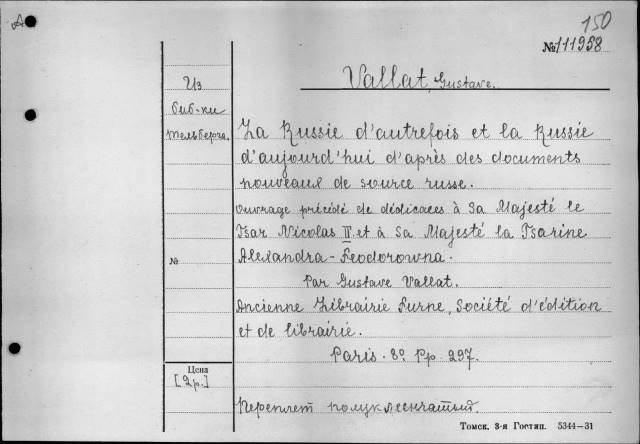 A
150
№ 111958
Vallat, Gustave.
Из
биб-ки
Тельберга.
La Russie d'autrefois et la Russie
d'aujourd'hui d'après des documents
nouveaux de source russe.
Ouvrage précédé de dédicaces à Sa Majesté le
Tsar Nicolas II et à Sa Majesté la Tsarine
№
Alexandra-Feodorowna.
Par Gustave Vallat.
Ancienne Librairie Furne, Société d'édition
et de librairie.
Paris. 8º Pp. 297.
Цена
[2р.]
Переплет полуклеенчатый.
Томск. 3-я Гостип. 5344—31